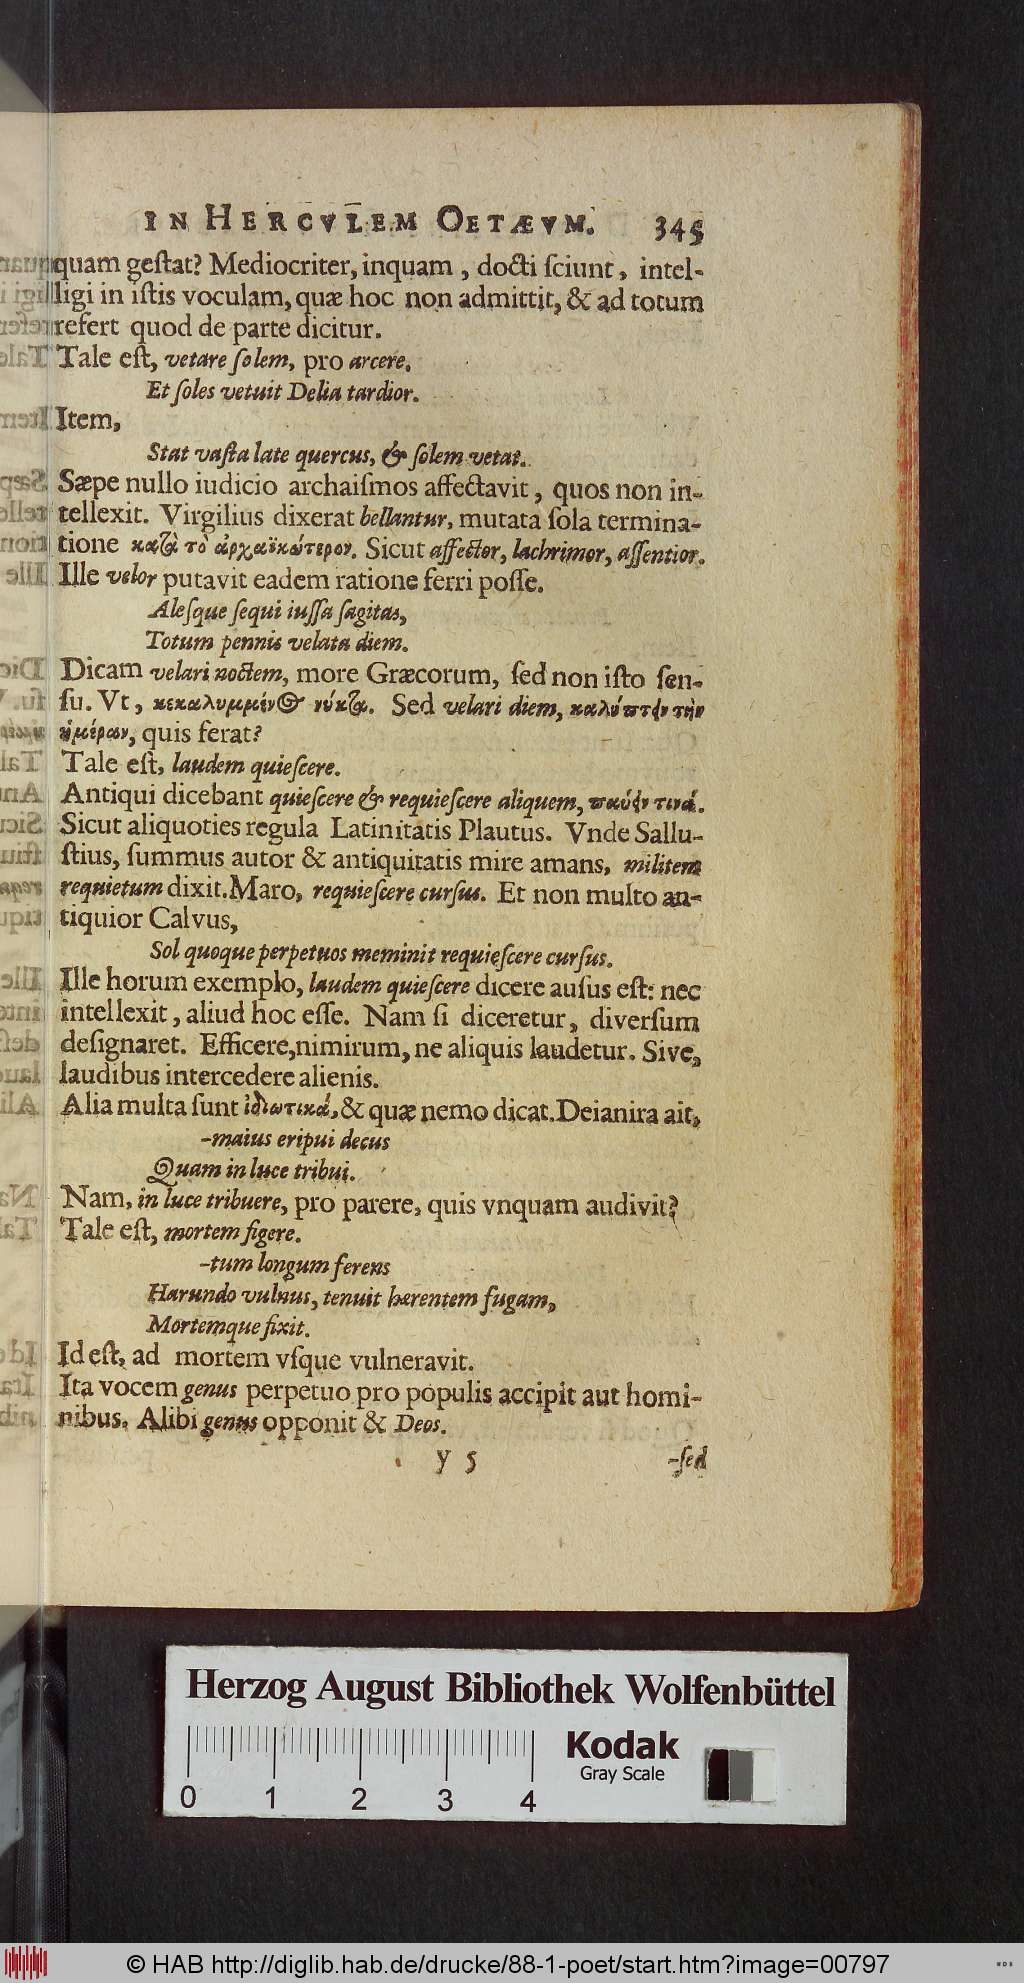 IN HERCVLEM OETÆVM. 345
quam geſtat? Mediocriter, inquam, docti ſciunt, intel-
ligi in iſtis voculam, quæ hoc non admittit, & ad totum
refert quod de parte dicitur.
Tale eſt, vetare ſolem, pro arcere.
Et ſoles vetuit Delia tardior.
Item,
Stat vaſta late quercus, & ſolem vetat.
Sæpe nullo iudicio archaiſmos affectavit, quos non in-
tellexit. Virgilius dixerat bellantur, mutata ſola termina-
tione κατὰ τὸ ἀρχαϊκώτερον. Sicut affector, lachrimor, aſſentior.
Ille velor putavit eadem ratione ferri poſſe.
Aleſque ſequi iuſſa ſagitas,
Totum pennis velata diem.
Dicam velari noctem, more Græcorum, ſed non iſto ſen-
ſu. Vt, κεκαλυμμένος νύκτα. Sed velari diem, καλύπτειν τὴν
ἡμέραν, quis ferat?
Tale eſt, laudem quieſcere.
Antiqui dicebant quieſcere & requieſcere aliquem, παύειν τινά.
Sicut aliquoties regula Latinitatis Plautus. Vnde Sallu-
ſtius, ſummus autor & antiquitatis mire amans, militem
requietum dixit. Maro, requieſcere curſus. Et non multo an-
tiquior Calvus,
Sol quoque perpetuos meminit requieſcere curſus.
Ille horum exemplo, laudem quieſcere dicere auſus eſt: nec
intellexit, aliud hoc eſſe. Nam ſi diceretur, diverſum
deſignaret. Efficere, nimirum, ne aliquis laudetur. Sive,
laudibus intercedere alienis.
Alia multa ſunt ἰδιωτικά, & quæ nemo dicat. Deianira ait,
-maius eripui decus
Quam in luce tribui.
Nam, in luce tribuere, pro parere, quis vnquam audivit?
Tale eſt, mortem figere.
-tum longum ferens
Harundo vulnus, tenuit hærentem fugam,
Mortemque fixit.
Id eſt, ad mortem vſque vulneravit.
Ita vocem genus perpetuo pro populis accipit aut homi-
nibus. Alibi genus opponit & Deos.
y 5 -ſed
Herzog August Bibliothek Wolfenbüttel
Kodak
Gray Scale
0 1 2 3 4
© HAB http://diglib.hab.de/drucke/88-1-poet/start.htm?image=00797